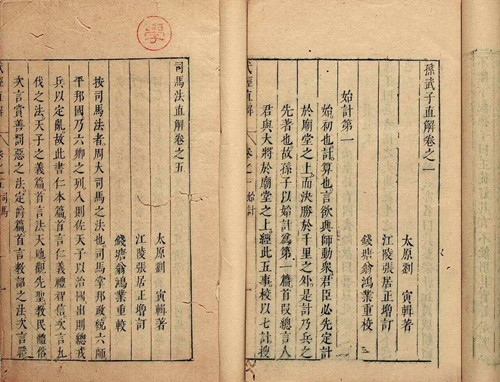 孫武子直解卷之一
太原劉 寅輯著
江陵張居正增訂
錢塘翁鴻業重校
始計第一
始初也計算也言欲興師動衆君臣必先定計
於廟堂之上而決勝於千里之外是計乃兵之
先著也故孫子以始計為第一篇首叚總言人
君與大將於廟堂之上經此五事校以七計搜
武經直解 卷之一 始計
學
司馬法直解卷之五
太原劉 寅輯著
江陵張居正增訂
錢塘翁鴻業重校
按司馬法者周大司馬之法也司馬掌邦政統六師
平邦國乃六卿之列入則佐天子以治國出則總戎
兵以定亂故此書仁本篇首言仁義禮智信次言九
伐之法天子之義篇首言法天地觀先聖教民體俗
次言賞善罰惡之法定爵篇首言教詔之法次言
武經直解 卷之五 司馬